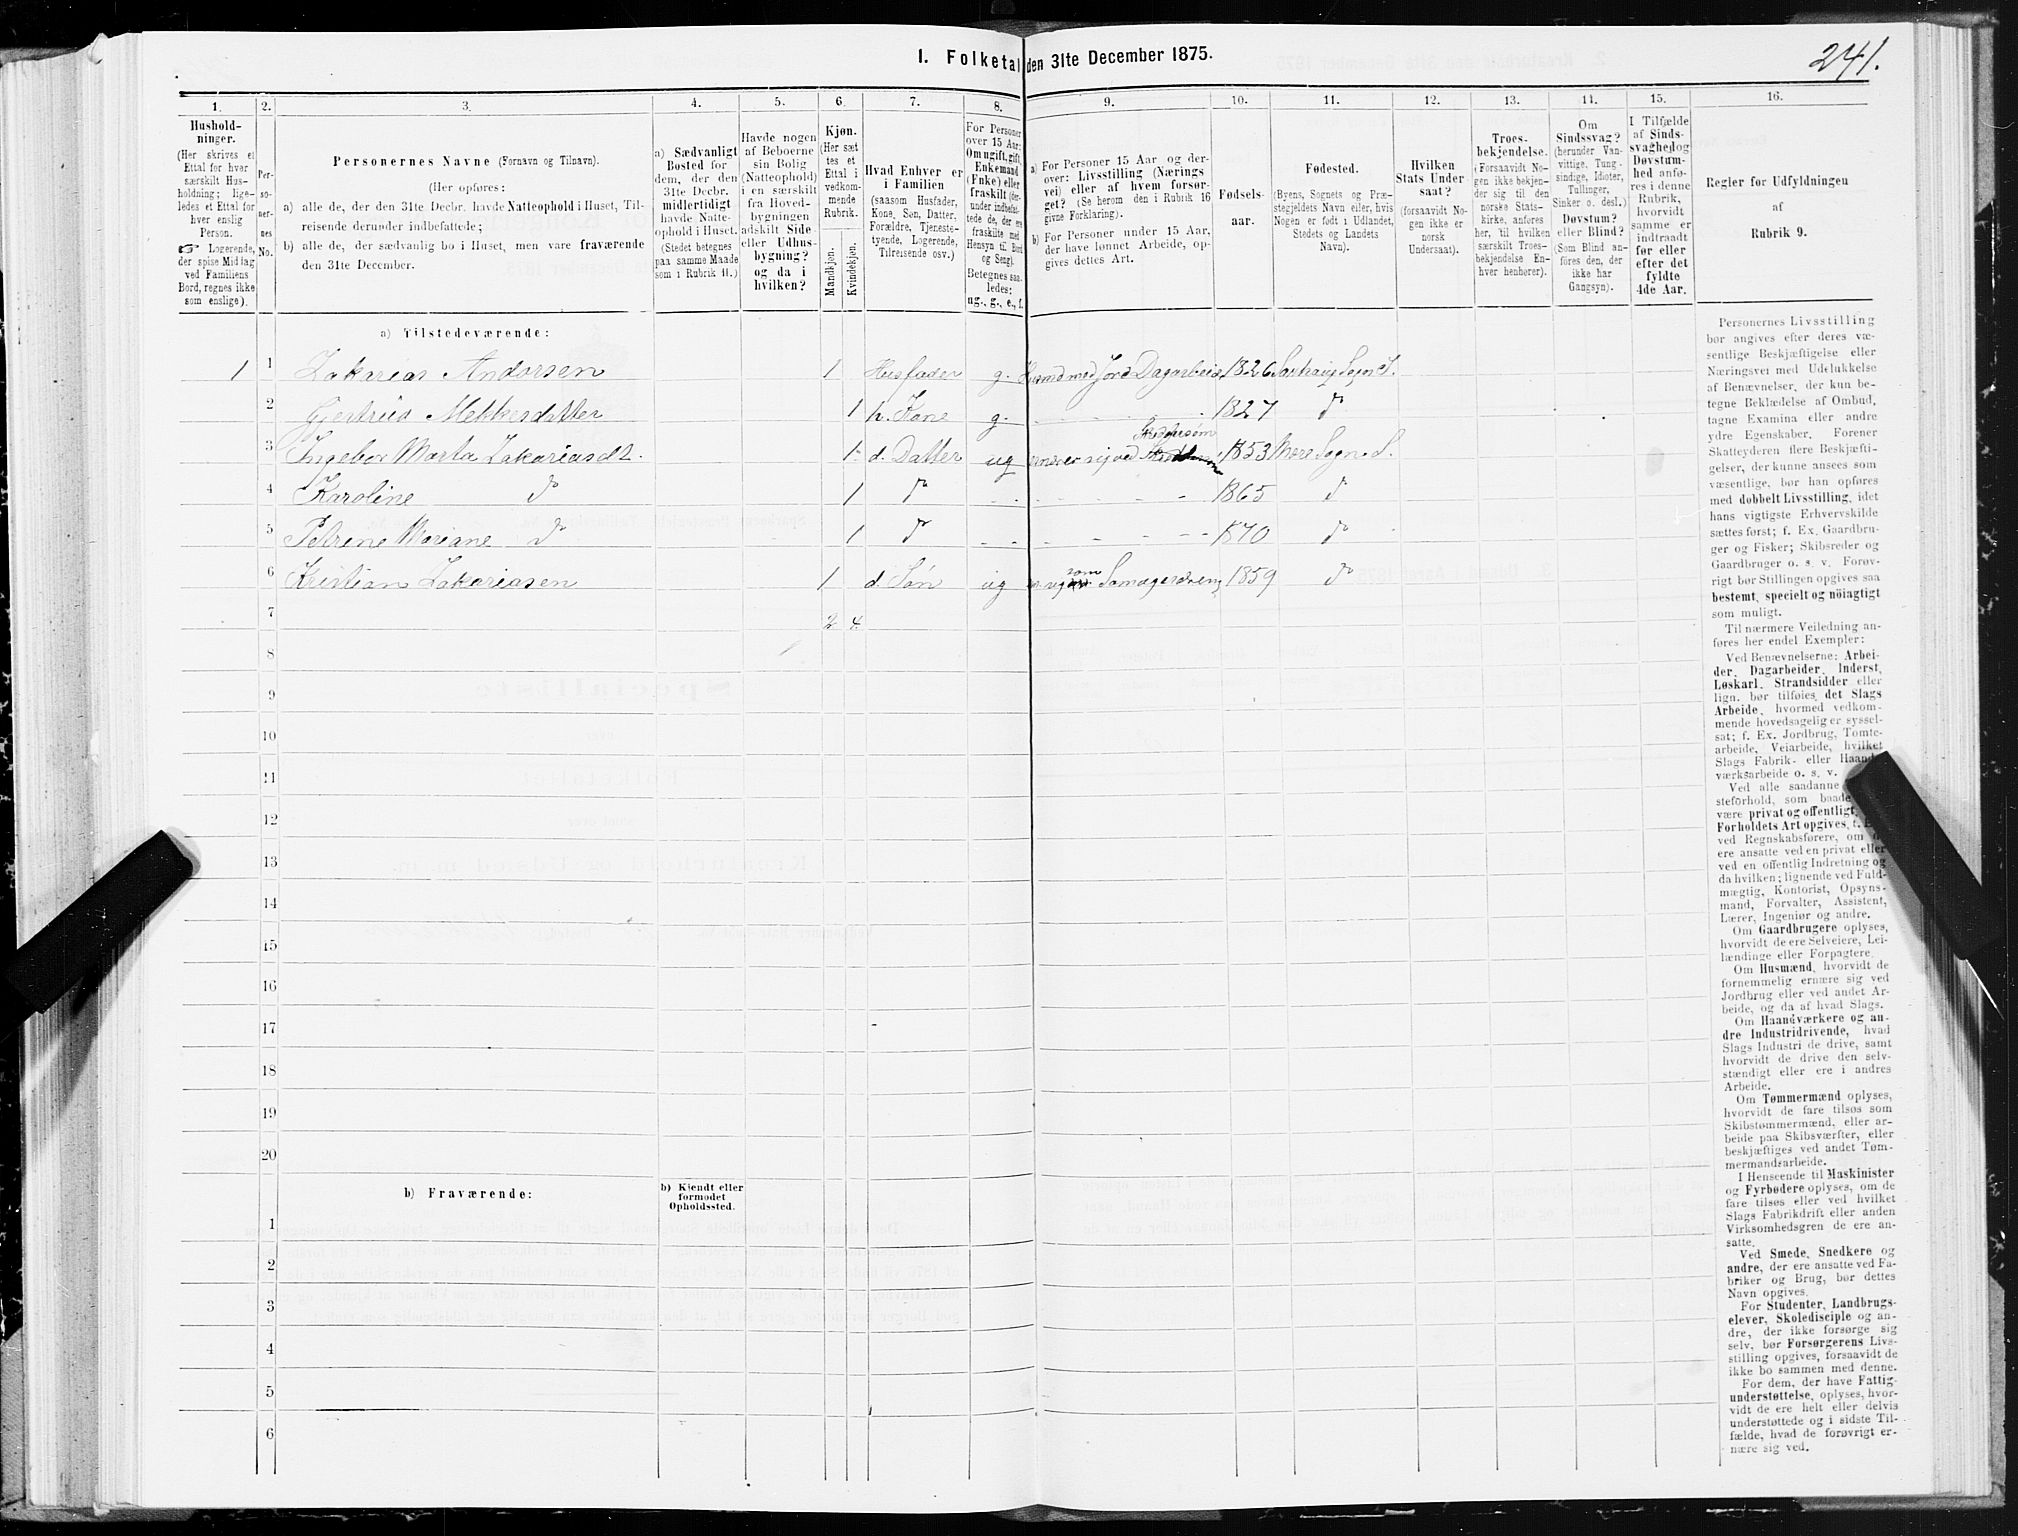 241.
I. Folketal den 31te December 1875.
1. 2. 3. 4. 5. 6. 7. 8. 9. 10. 11. 12. 13. 14. 15. 16.
Hushold-
ninger.
(Her skrives et
Ettal for hver
særskilt Hus-
holdning; lige-
ledes et Ettal for
hver enslig
Person.
☞ Logerende,
der spise Middag
ved Familiens
Bord, regnes ikke
som enslige).
Per-
so-
ner-
nes
No.
Personernes Navne (Fornavn og Tilnavn).
(Her opføres:
a) alle de, der den 31te Decbr. havde Natteophold i Huset, Til-
reisende derunder indbefattede;
b) alle de, der sædvanlig bo i Huset, men vare fraværende
den 31te December.
a) Sædvanligt
Bosted for
dem, der den
31te Decbr.
midlertidigt
havde Natte-
ophold i Huset.
(Stedet betegnes
paa samme Maade
som i Rubrik 11.)
Havde nogen
af Beboerne
sin Bolig
(Natteophold)
i en særskilt
fra Hoved-
bygningen
adskilt Side-
eller Udhus-
bygning?
og da i
hvilken?
Kjøn.
(Her sæt
tes et
Ettal i
vedkom-
mende
Rubrik.
Mandkjøn.
Kvindekjøn.
Hvad Enhver er
i Familien
(saasom Husfader,
Kone, Søn, Datter,
Forældre, Tjeneste-
tyende, Logerende,
Tilreisende osv.)
For Personer
over 15 Aar:
Om ugift, gift,
Enkemand
(Enke) eller
fraskilt (der-
under indbefat-
tede de, der ere
fraskilte med
Hensyn til Bord
og Seng).
Betegnes saa-
ledes:
ug., g., e., f.
a) For Personer 15 Aar og der-
over: Livsstilling (Nærings
vei) eller af hvem forsør-
get? (Se herom den i Rubrik 16
givne Forklaring).
b) For Personer under 15 Aar,
der have lønnet Arbeide, op-
gives dettes Art.
Fødsels-
aar.
Fødested.
(Byens, Sognets og Præ-
stegjeldets Navn eller, hvis
Nogen er født i Udlandet,
Stedets og Landets
Navn).
Hvilken
Stats Under
saat?
(forsaavidt No-
gen ikke er
norsk
Undersaat).
Troes-
bekjendelse.
(Forsaavidt No-
gen ikke bekjen-
der sig til den
norske Stats-
kirke, anføres
her, til hvilken
særskilt Troes-
bekjendelse En-
hver henhører).
Om
Sindssvag?
(herunder Van-
vittige, Tung-
sindige, Idioter,
Tullinger,
Sinker o. desl.)
Døvstum?
eller Blind?
(Som Blind an-
føres den, der
ikke har
Gangsyn).
I Tilfælde
af Sinds-
svaghed og
Døvstum-
hed anfø-
res i denne
Rubrik,
hvorvidt
samme er
indtraadt
før eller
efter det
fyldte
4de Aar.
Regler for Udfyldningen
af
Rubrik 9.
a) Tilstedeværende:
1 1 Zakarias Andorsen 1 Husfader g. Husmd med Jord Dagarbeid. 1826 Sogn S.
2 Gjertrud 1 h. Kone g. 1827 do
3 Ingebor Marta Zakariasdt. 1 d. Datter ug ved 1853 More Sogn S.
4 Karoline do 1 do 1865 do
5 Petrine Mariane do 1 do 1870 do
6 Kristian Zakariasen 1 d. Søn ug som 1859 do
7 2 4.
8
9
10
11
12
13
14
15
16
17
18
19
20
b) Fraværende:
b) Kjendt eller
formodet
Opholdssted.
1
2
3
4
5
6
Personernes Livsstilling
bør angives efter deres væ-
sentlige Beskjæftigelse eller
Næringsvei med Udelukkelse
af Benævnelser, der kun be-
tegne Beklædelse af Ombud,
tagne Examina eller andre
ydre Egenskaber. Forener
Skatteyderen flere Beskjæfti-
gelser, der kunne ansees som
væsentlige, bør han opføres
med dobbelt Livsstilling, idet
hans vigtigste Erhvervskilde
sættes først; f. Ex. Gaardbru-
ger og Fisker; Skibsreder og
Gaardbruger o. s. v. Forøv-
rigt bør Stillingen opgives saa
bestemt, specielt og nöiagtigt
som muligt.
Til nærmere Veiledning an-
føres her endel Exempler:
Ved Benævnelserne: Arbei-
der, Dagarbeider, Inderst,
Løskarl, Strandsidder eller
lign. bør tilføies det Slags
Arbeide, hvormed vedkom-
mende hovedsagelig er syssel-
sat; f. Ex. Jordbrug, Tomte-
arbeide, Veiarbeide, hvilket
Slags Fabrik- eller Haand-
værksarbeide o. s. v.
Ved alle saadanne
steforhold, som baade
være privat og offentligt,
Forholdets Art opgives, t. E.
ved Regnskabsførere, om
ere ansatte ved en privat eller
ved en offentlig Indretning og
da hvilken; lignende ved Fuld-
mægtig, Kontorist, Opsyns-
mand, Forvalter, Assistent,
Lærer, Ingeniør og andre.
Om Gaardbrugere oplyses,
hvorvidt de ere Selveiere, Lei-
lændinge eller Forpagtere.
Om Husmænd, hvorvidt de
fornemmelig ernære sig ved
Jordbrug eller ved andet Ar-
beide, og da af hvad Slags.
Om Haandværkere og an-
dre Industridrivende, hvad
Slags Industri de drive, samt
hvorvidt de drive den selv-
stændigt eller ere i andres
Arbeide.
Om Tømmermænd oplyses,
hvorvidt de fare tilsøs som
Skibstømmermænd, eller ar-
beide paa Skibsværfter, eller
beskjæftiges ved andet Tøm-
mermandsarbeide.
I Henseende til Maskinister
og Fyrbødere oplyses, om de
fare tilsøs eller ved hvilket
Slags Fabrikdrift eller anden
Virksomhedsgren de ere an-
satte.
Ved Smede, Snedkere og
andre, der ere ansatte ved Fa-
briker og Brug, bør dettes
Navn opgives.
For Studenter, Landbrugs-
elever, Skoledisciple og an-
dre, der ikke forsørge sig
selv, bør Forsørgerens Livs-
stilling opgives, forsaavidt de
ikke bo sammen med denne.
For dem, der have Fattig-
understøttelse, oplyses, hvor-
vidt de ere helt eller delvis
understøttede og i sidste Til-
fælde, hvad de forøvrigt er-
nære sig ved.